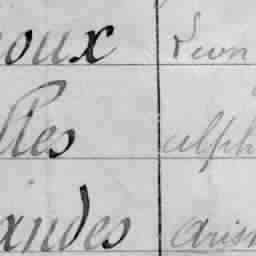 oux Léon
lles alph
andes aris